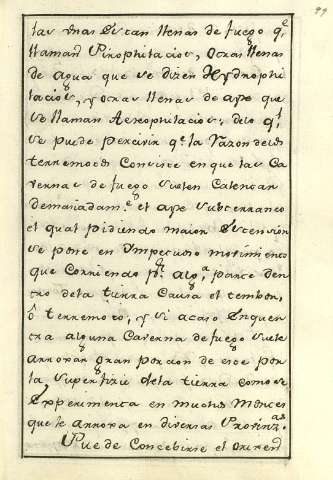 99
las unas estan llenas de fuego q.e
llaman Pirophilacios, otras llenas
de agua que se dizen Hydrophi
lacios, y otras llenas de ayre que
se llaman Aereophilacios; de lo q.l
se puede percivir q.e la razon de los
terremotos Consiste en que las Ca
vernas de fuego suelen Calentar
demasiadam.e el ayre subterraneo
el qual pidiendo maior Estension
se pone en Ympetuoso movimiento
que Corriendo p.r alg.a parte den
tro de la tierra Causa el temblor,
ô terremoto, y si acaso Enquen
tra alguna Caverna de fuego suele
arrojar gran porcion de ese por
la superfizie de la tierra como se
Experimenta en muchos Montes
que le arroja en diversas Provinz.as
Puede Concebirse el